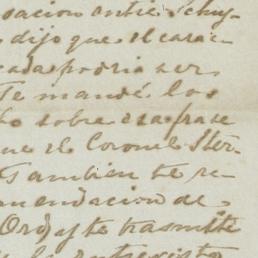 sacion entre Schuy-
dijo que el carac-
cada podria ser
Te mandé los
sobre esa frase
que el Coronel Ster-
Tambien te re-
mendacion de
Ord y te trasmite
la entrevista